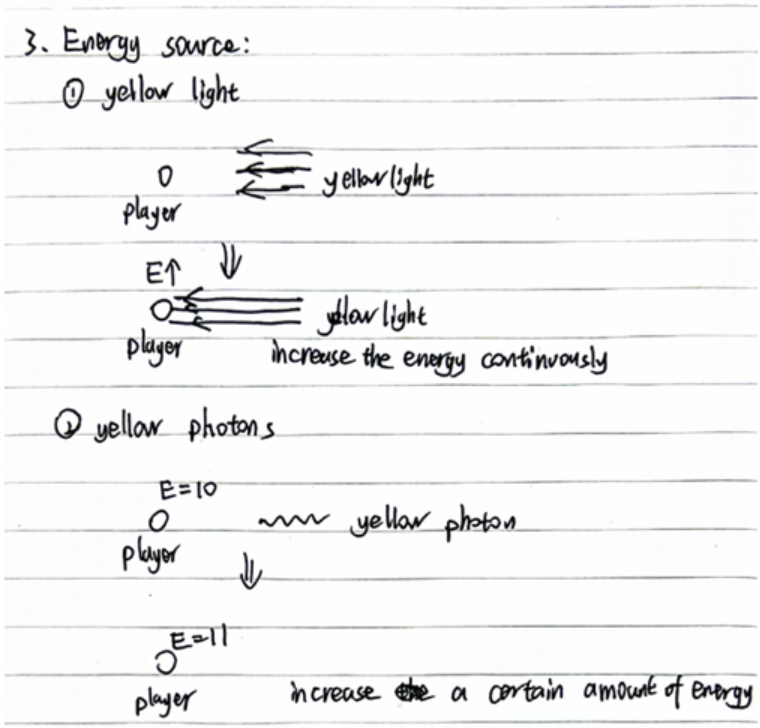 3. Energy source:
① yellow light
yellow light
player
E↑
yellow light
player
increase the energy continuously
② yellow photons
E=10
yellow photon
player
E=11
player
increase a certain amount of energy